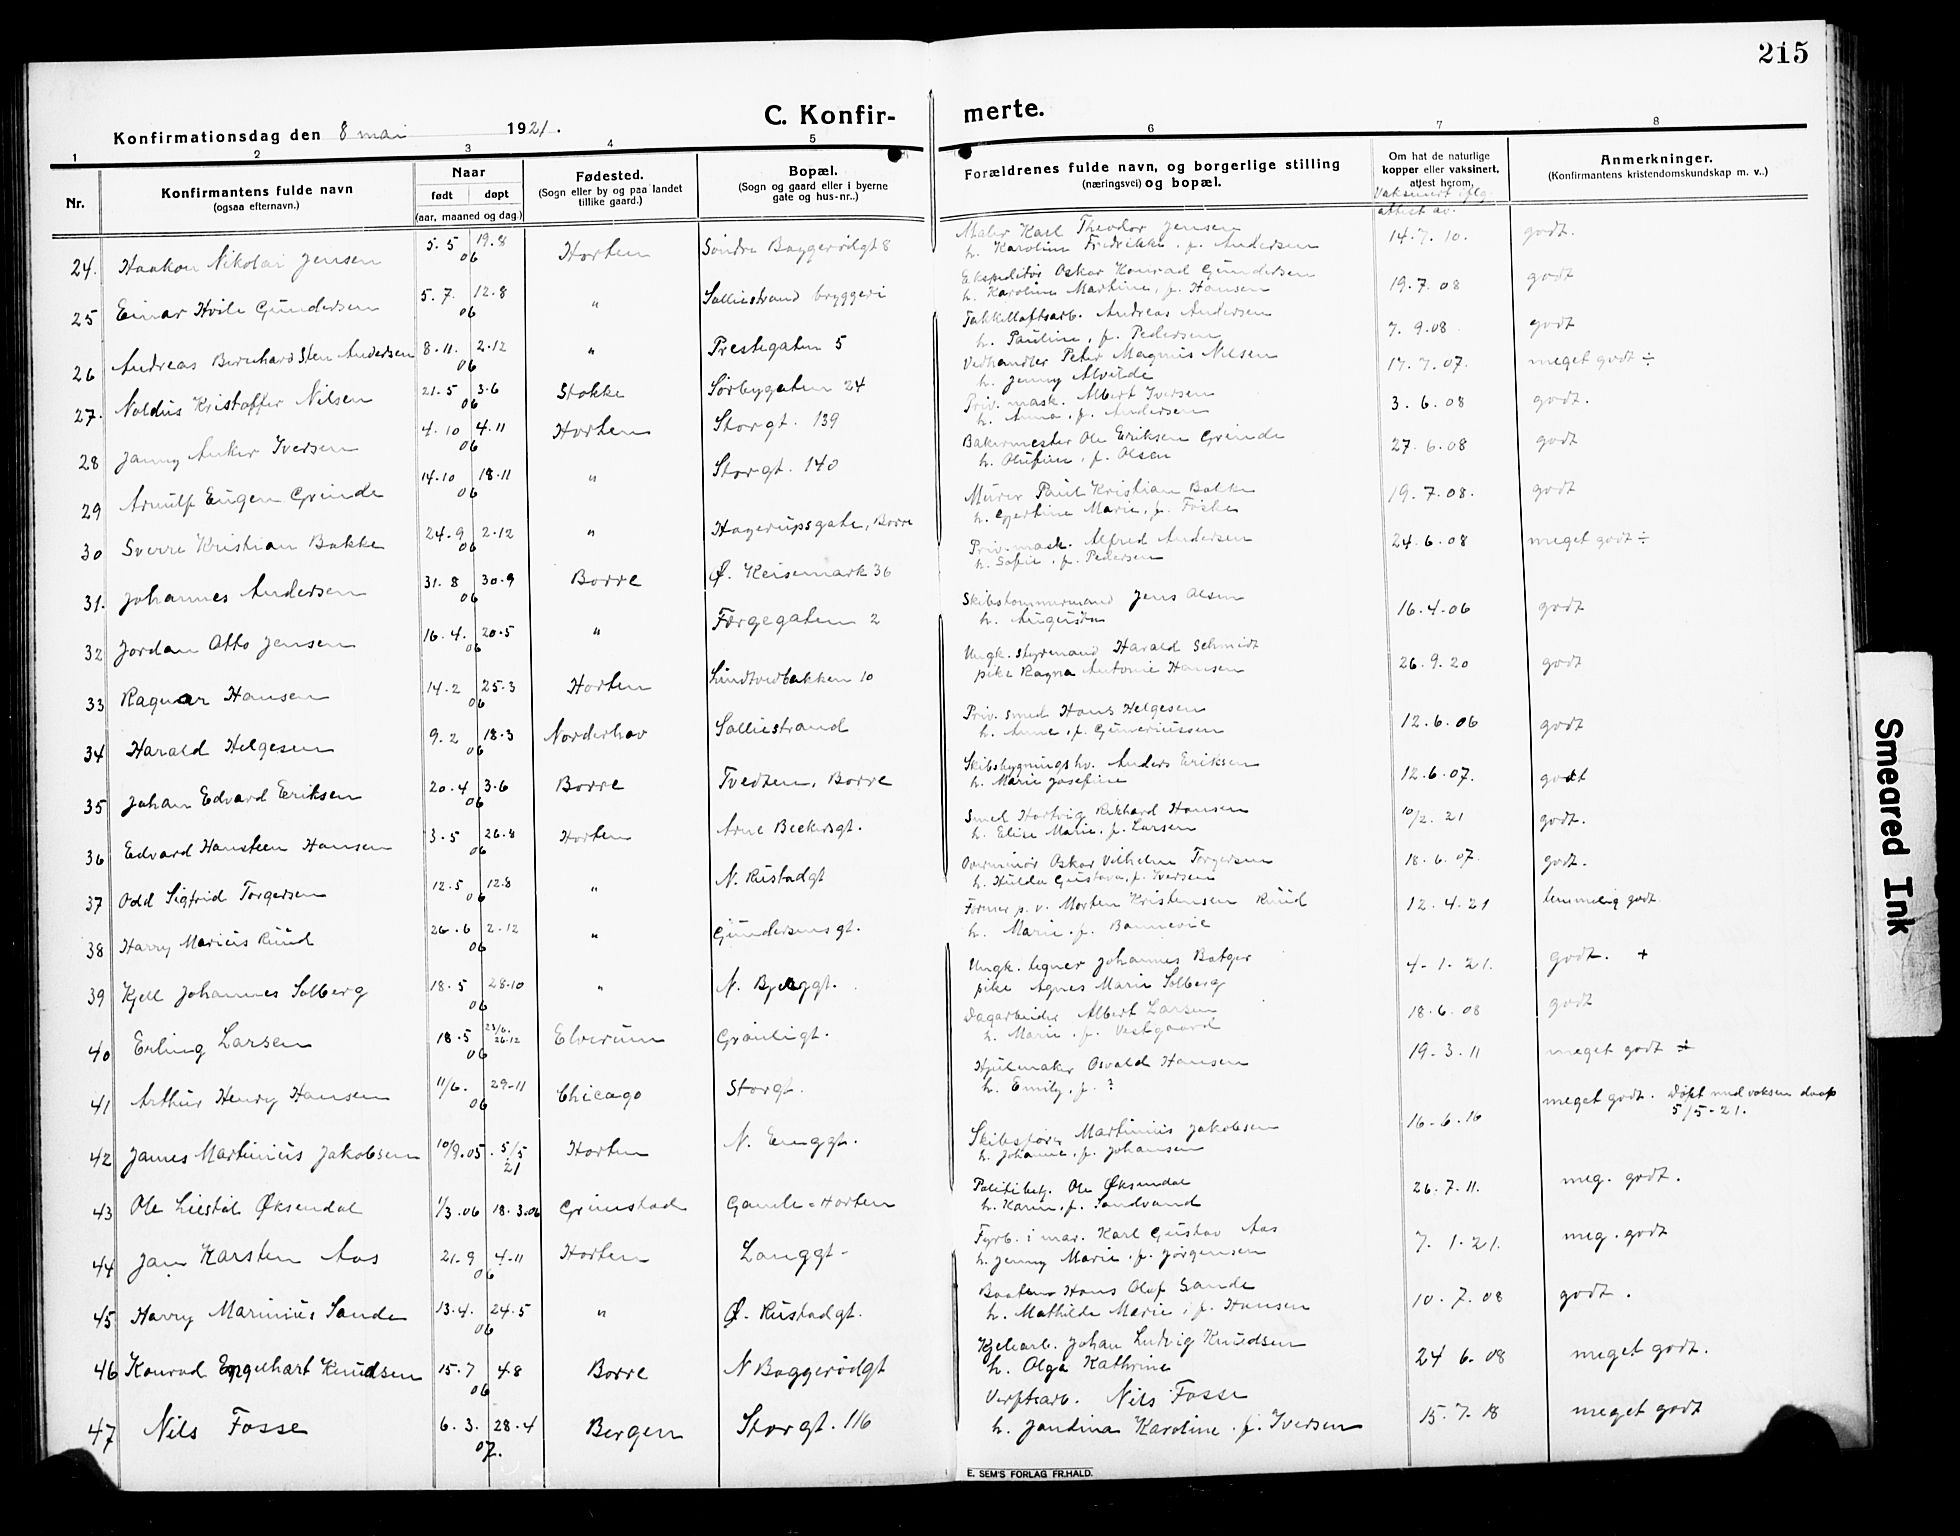 215
C. Konfir-merte.
Konfirmationsdag den 8 mai 1921.
1 2 3 4 5 6 7 8
Nr. Konfirmantens fulde navn (ogsaa efternavn.) Naar født døpt (aar, maaned og dag.) Fødested. (Sogn eller by og paa landet tillike gaard.) Bopæl. (Sogn og gaard eller i byerne gate og hus-nr..) Forældrenes fulde navn, og borgerlige stilling (næringsvei) og bopæl. Om hat de naturlige kopper eller vaksinert, attest herom. Anmerkninger. (Konfirmantens kristendomskundskap m. v..)
Vaksinert iflg. attest av.
24. Haakon Nikolai Jensen 5.5 19.8 06 Horten Søndre Baggerødgt 8 Maler Karl Theodor Jensen h. Karoline Fredrikke, f. Andersen 14.7.10. godt.
25 Einar Hvile Gundersen 5.7. 12.8 06 " Solliestrand bryggeri Ekspeditør Oskar Konrad Gundersen h. Karoline Martine, f. Hansen 19.7.08 godt
26 Andreas Bernhard Sten Andersen 8.11. 2.12 06 " Prestegaten 5 Takkelloftsarb. Andreas Andersen h. Pauline, f. Pedersen 7.9.08. godt
27. Noldus Kristoffer Nilsen 21.5 3.6 06 Stokke Sørbygaten 24 Vedhandler Peter Magnus Nilsen h. Jenny Alvilde 17.7.07. meget godt ÷
28 Janny Anker Iversen 4.10 4.11 06 Horten Storgt. 139 Priv. mask. Albert Iversen h. Anna, f. Andersen 3.6.08 godt.
29 Arnulf Eugen Grinde 14.10 18.11 06 " Storgt. 140 Bakermester Ole Eriksen Grinde h. Olufine, f. Olsen 27.6.08 godt
30 Sverre Kristian Bakke 24.9 2.12 06 " Hagerupsgate, Borre Murer Paul Kristian Bakke h. Gjertine Marie, f. Foske 19.7.08. godt
31. Johannes Andersen 31.8 30.9 06 Borre Ø. Keisemark 36 Priv. mask. Alfred Andersen h. Sofie, f. Pedersen 24.6.08 meget godt ÷
32 Jordan Otto Jensen 16.4. 20.5 06 " Færgegaten 2 Skibstømmermand Jens Olsen h. Augusta 16.4.06 godt
33 Ragnar Hansen 14.2 25.3 06 Horten Lindtvedbakken 10 Ungk. styrmand Harald Schmidt pike Ragna Antonie Hansen 26.9.20 godt
34 Harald Helgesen 9.2 18.3 06 Norderhov Solliestrand Priv. smed Hans Helgesen h. Anne, f. Guneriussen 12.6.06 godt
35 Johan Edvard Eriksen 20.4 3.6 06 Borre Tvedten, Borre Skibsbygningshv. Anders Eriksen h. Marie Josefine 12.6.07. godt
36 Edvard Hansteen Hansen 3.5 26.8 06 Horten Arne Beckersgt. Smed Hartvig Rikhard Hansen h. Elise Marie, f. Larsen 10/2.21 godt.
37 Odd Sigfrid Torgersen 12.5 12.8 06 " N. Rustadgt Overminør Oskar Vilhelm Torgersen h. Hulda Gustava, f. Iversen 18.6.07. godt.
38 Harry Marius Ruud 26.6 2.12 06 " Gundersensgt. Former p. v. Morten Kristensen Ruud h. Marie, f. Bonnevie 12.4.21 temmelig godt.
39 Kjell Johannes Solberg 18.5 28.10 06 " N. Bjerggt. Ungk. tegner Johannes Bøtger pike Agnes Marie Solberg 4.1.21. godt. +
40 Erling Larsen 18.5 23/6. 26.12 06 Elverum Grønligt. Dagarbeider Albert Larsen h. Marie, f. Vestgaard 18.6.08 godt
41 Arthur Henry Hansen 11/6. 29.11 06 Chicago Storgt. Hjulmaker Osvald Hansen h. Emily, f. ? 19.3.11 meget godt ÷
42 James Martinius Jakobsen 10/9.05. 5/5 21 Horten N. Enggt. Skibsfører Martinius Jakobsen h. Johanne, f. Johansen 16.6.16 meget godt. Døpt med voksen daap 5/5-21.
43 Ole Liestøl Øksendal 1/3.06 18.3.06 Grimstad Gamle-Horten Politibetj. Ole Øksendal h. Karin, f. Sandvand 26.7.11. meg. godt.
44 Jan Karsten Aas 21.9 4.11 06 Horten Langgt. Fyrb. i mar. Karl Gustav Aas h. Jenny Marie, f. Jørgensen 7.1.21. meg. godt
45 Harry Marinius Sande 13.4. 24.5 06 " Ø. Rustadgt. Baatsm. Hans Olaf Sande h. Mathilde Marie, f. Hansen 10.7.08 godt.
46 Konrad Engelhart Knudsen 15.7 4.8 06 Borre N Baggerødgt Kjelearb. Johan Ludvig Knudsen h. Olga Kathrine 24 6.08 meget godt.
47 Nils Fosse 6.3. 28.4 07. Bergen Storgt. 116 Verftsarb. Nils Fosse h. Jandina Karoline, f. Iversen 15.7.18 meget godt
E. SEM'S FORLAG FR.HALD.
Smeared Ink